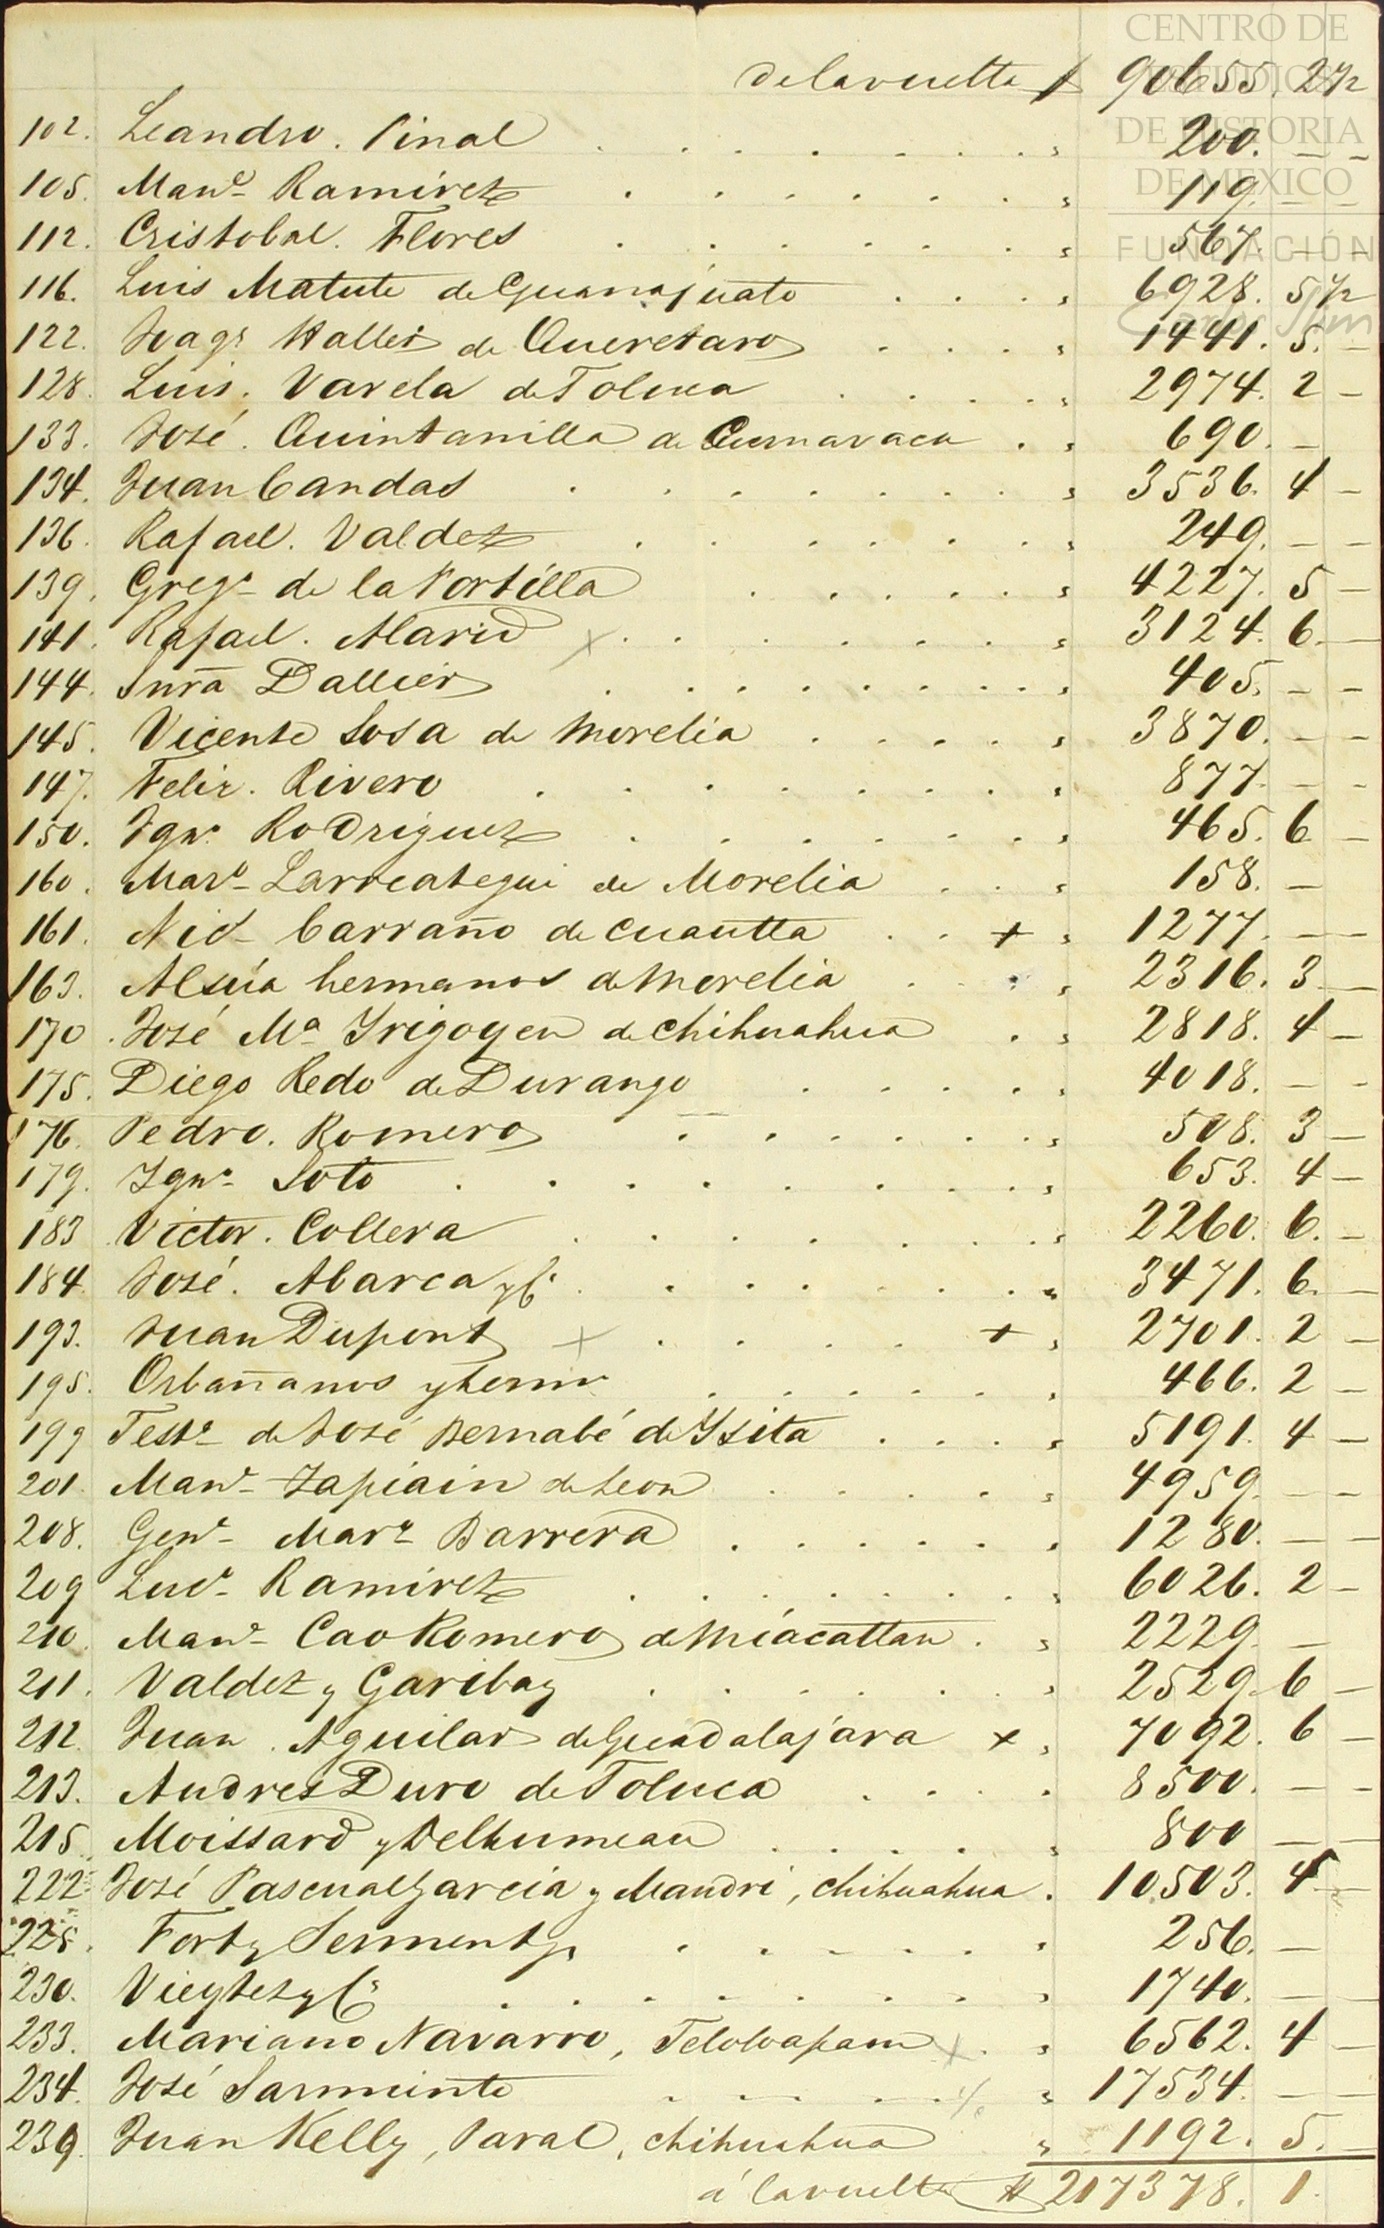 CENTRO DE
ESTUDIOS
DE HISTORIA
DE MÉXICO
FUNDACIÓN
Carlos Slim
de la vuelta $ 90655. 2 1/2
102. Leandro. Pinal 200. — —
105. Manl. Ramirez 119. — —
112. Cristobal. Flores 567. — —
116. Luis Matute de Guanajuato 6928. 5 1/2
122. de Queretaro 1441. 5. —
128. Luis. Varela de Toluca 2974. 2 —
133. José. Quintanilla de Cuernavaca 690. —
134. Juan Candas 3536. 4 —
136. Rafael. Valdez 249. — —
139. Grego. de la Portilla 4227. 5 —
141. Rafael. Alarid x 3124. 6. —
144. Dallier 405. — —
145. Vicente Sosa de Morelia 3870. — —
147. Felix. Rivero 877. — —
150. Igno. Rodriguez 465. 6 —
160. Marº. Larreategui de Morelia 158. —
161. Carraño de Cuautla + 1277. — —
163. Alzúa hermanos de Morelia 2316. 3 —
170. José Mª Yrigoyen de Chihuahua 2818. 4 —
175. Diego Redo de Durango 4018. — —
176. Pedro. Romero 508. 3 —
179. Ygno. Soto 653. 4 —
183. Victor. Collera 2260. 6. —
184. José. Abarca y Cª 3471. 6. —
193. Juan Dupont x + 2701. 2 —
195. Orbañanos y hermo 466. 2 —
199 Testª de José Bernabé de Ysita 5191. 4 —
201. Manl. Zapiain de Leon 4959. — —
208. Genl. Marº Barrera 1280. — —
209 Ludº Ramirez 6026. 2 —
210. Manl. Cao Romero de Miacatlan. 2229 —
211. Valdez y Garibay 2529. 6 —
212. Juan. Aguilar de Guadalajara x 7092. 6 —
213. Andres Duro de Toluca 8500. — —
215. Moissard y Delhumeau 800 — —
222. José Pascual Garcia y Mandri, Chihuahua. 10503. 4 —
225. Fort y Serment 256. —
230. Vieytez y Cª 1740. —
233. Mariano Navarro, Teloloapam x 6562. 4 —
234. José Sarmiento 17534. — —
239. Juan Kelly, Paral, Chihuahua 1192. 5. —
á la vuelta $ 217378. 1.